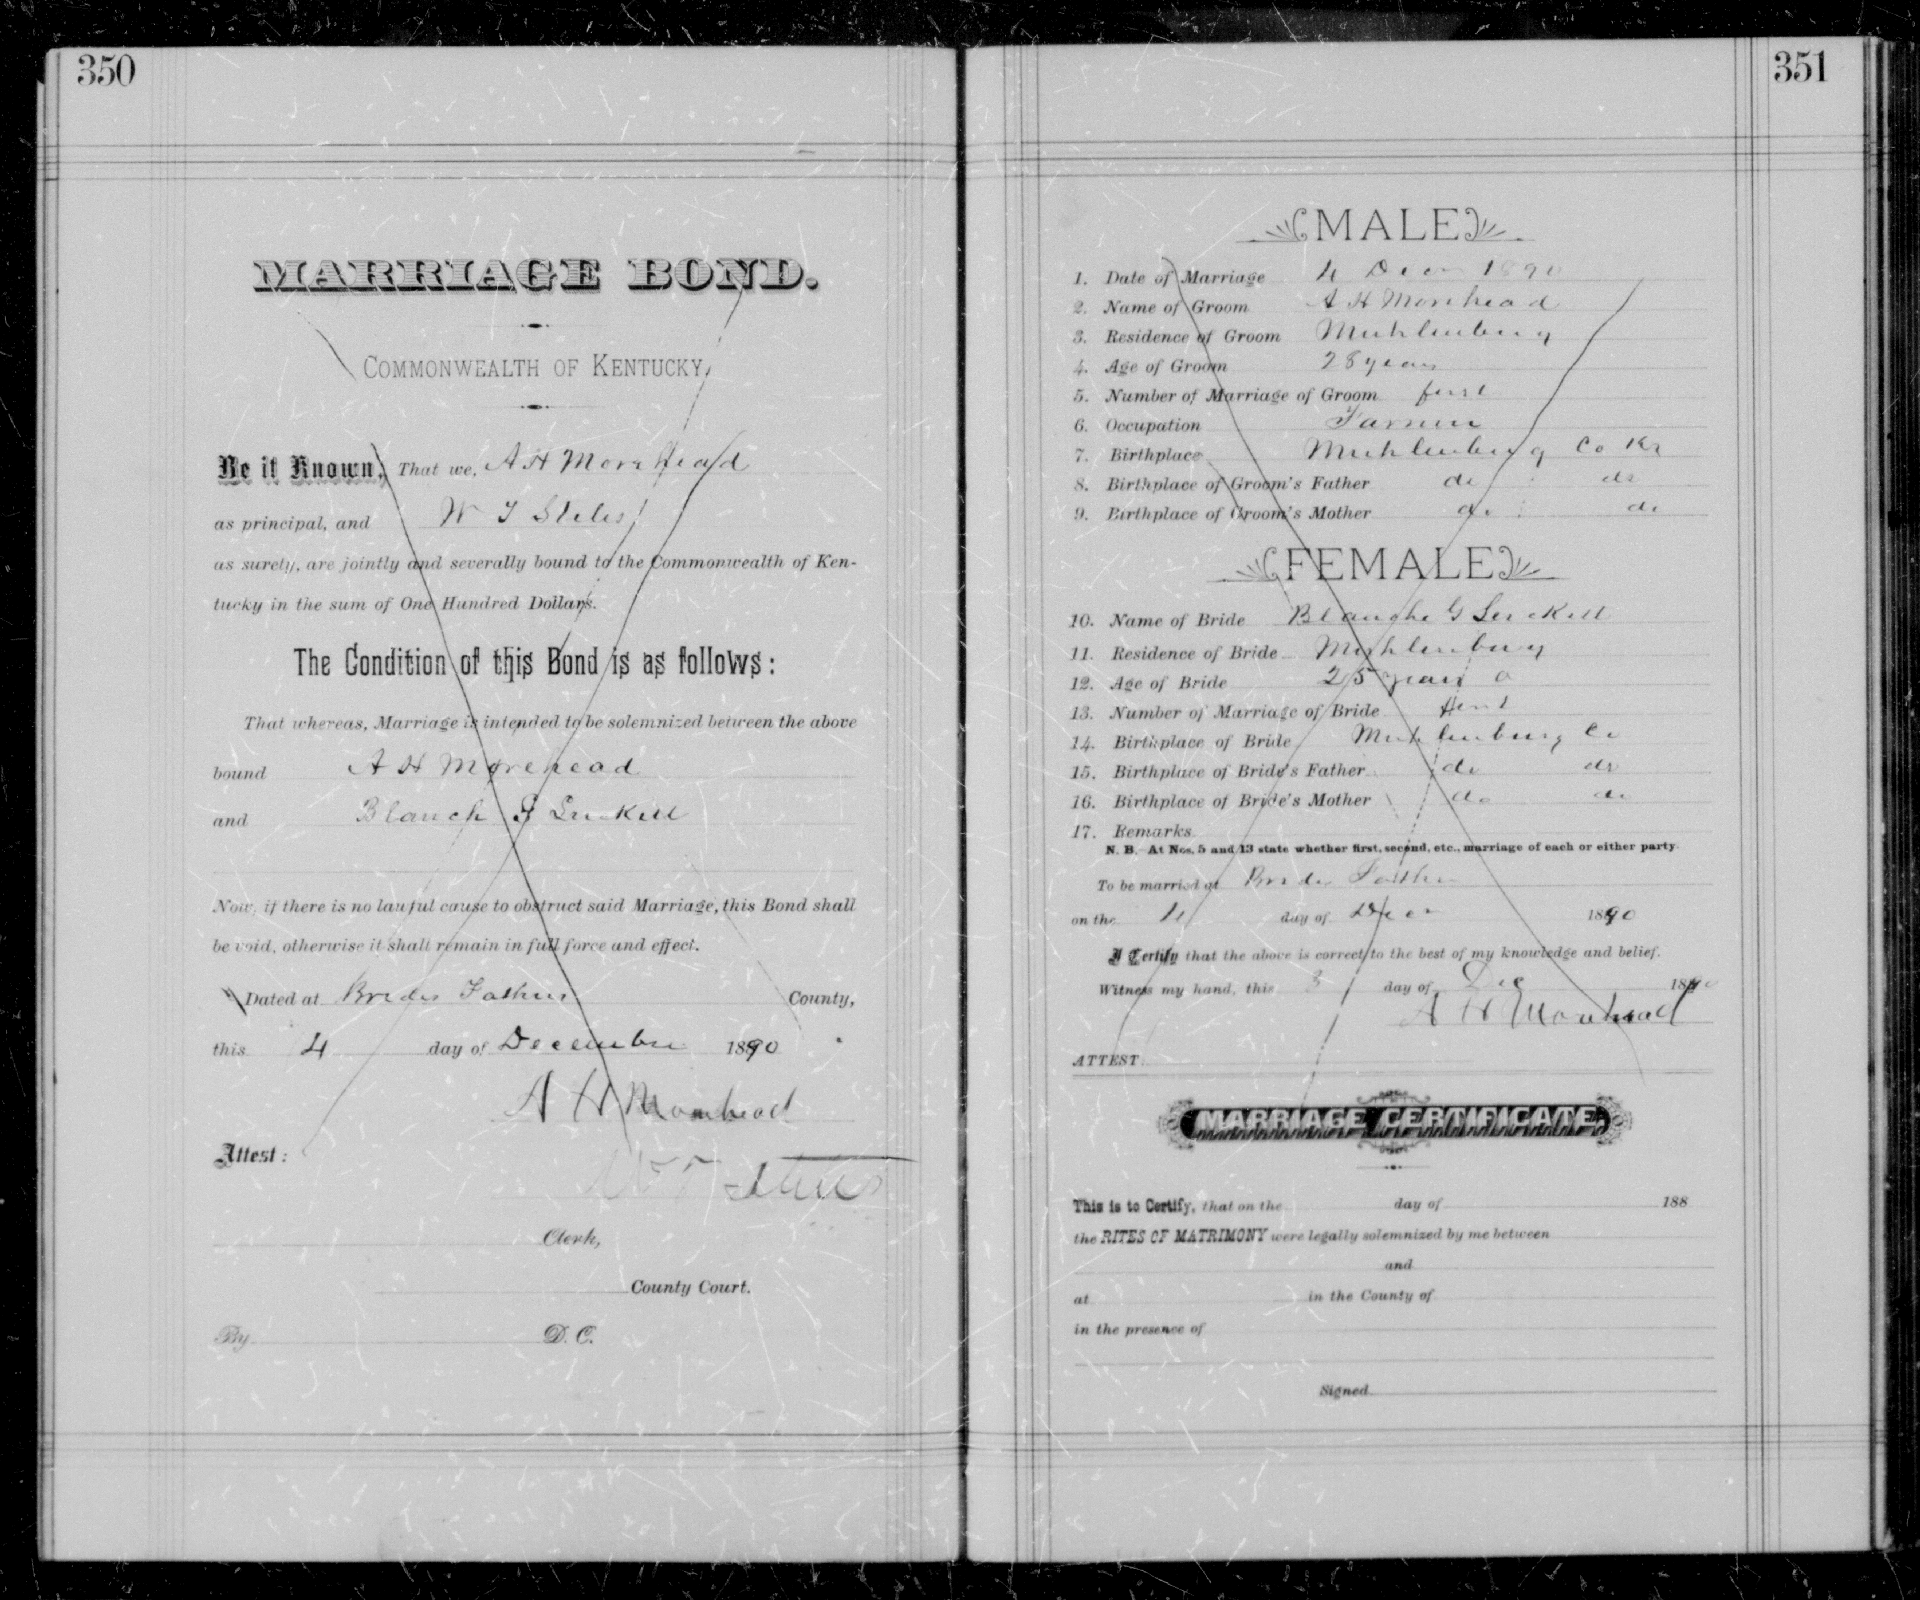 350
MARRIAGE BOND.
COMMONWEALTH OF KENTUCKY,
Be it Known, That we, A H Morehead
as principal, and W T Stiles
as surety, are jointly and severally bound to the Commonwealth of Ken-
tucky in the sum of One Hundred Dollars.
The Condition of this Bond is as follows:
That whereas, Marriage is intended to be solemnized between the above
bound A H Morehead
and Blanch G
Now, if there is no lawful cause to obstruct said Marriage, this Bond shall
be void, otherwise it shall remain in full force and effect.
Dated at Brides Fathers County,
this 4 day of December 1890
A H Morehead
Attest:
W T Stiles
Clerk,
County Court.
By D. C.
351
MALE
1. Date of Marriage 4 Decm 1890
2. Name of Groom A H Morehead
3. Residence of Groom Muhlenburg
4. Age of Groom 28 years
5. Number of Marriage of Groom first
6. Occupation Farmer
7. Birthplace Muhlenburg Co Ky
8. Birthplace of Groom's Father do do
9. Birthplace of Groom's Mother do do
FEMALE
10. Name of Bride Blanche G
11. Residence of Bride Muhlenburg
12. Age of Bride 25 years
13. Number of Marriage of Bride first
14. Birthplace of Bride Muhlenburg Co
15. Birthplace of Bride's Father do do
16. Birthplace of Bride's Mother do do
17. Remarks
N. B. At Nos. 5 and 13 state whether first, second, etc., marriage of each or either party.
To be married at Brides Father
on the 4 day of Decm 1890
I Certify that the above is correct to the best of my knowledge and belief.
Witness my hand, this 3 day of Dec 1890
A H Morehead
ATTEST:
MARRIAGE CERTIFICATE.
This is to Certify, that on the day of 188
the RITES OF MATRIMONY were legally solemnized by me between
and
at in the County of
in the presence of
Signed